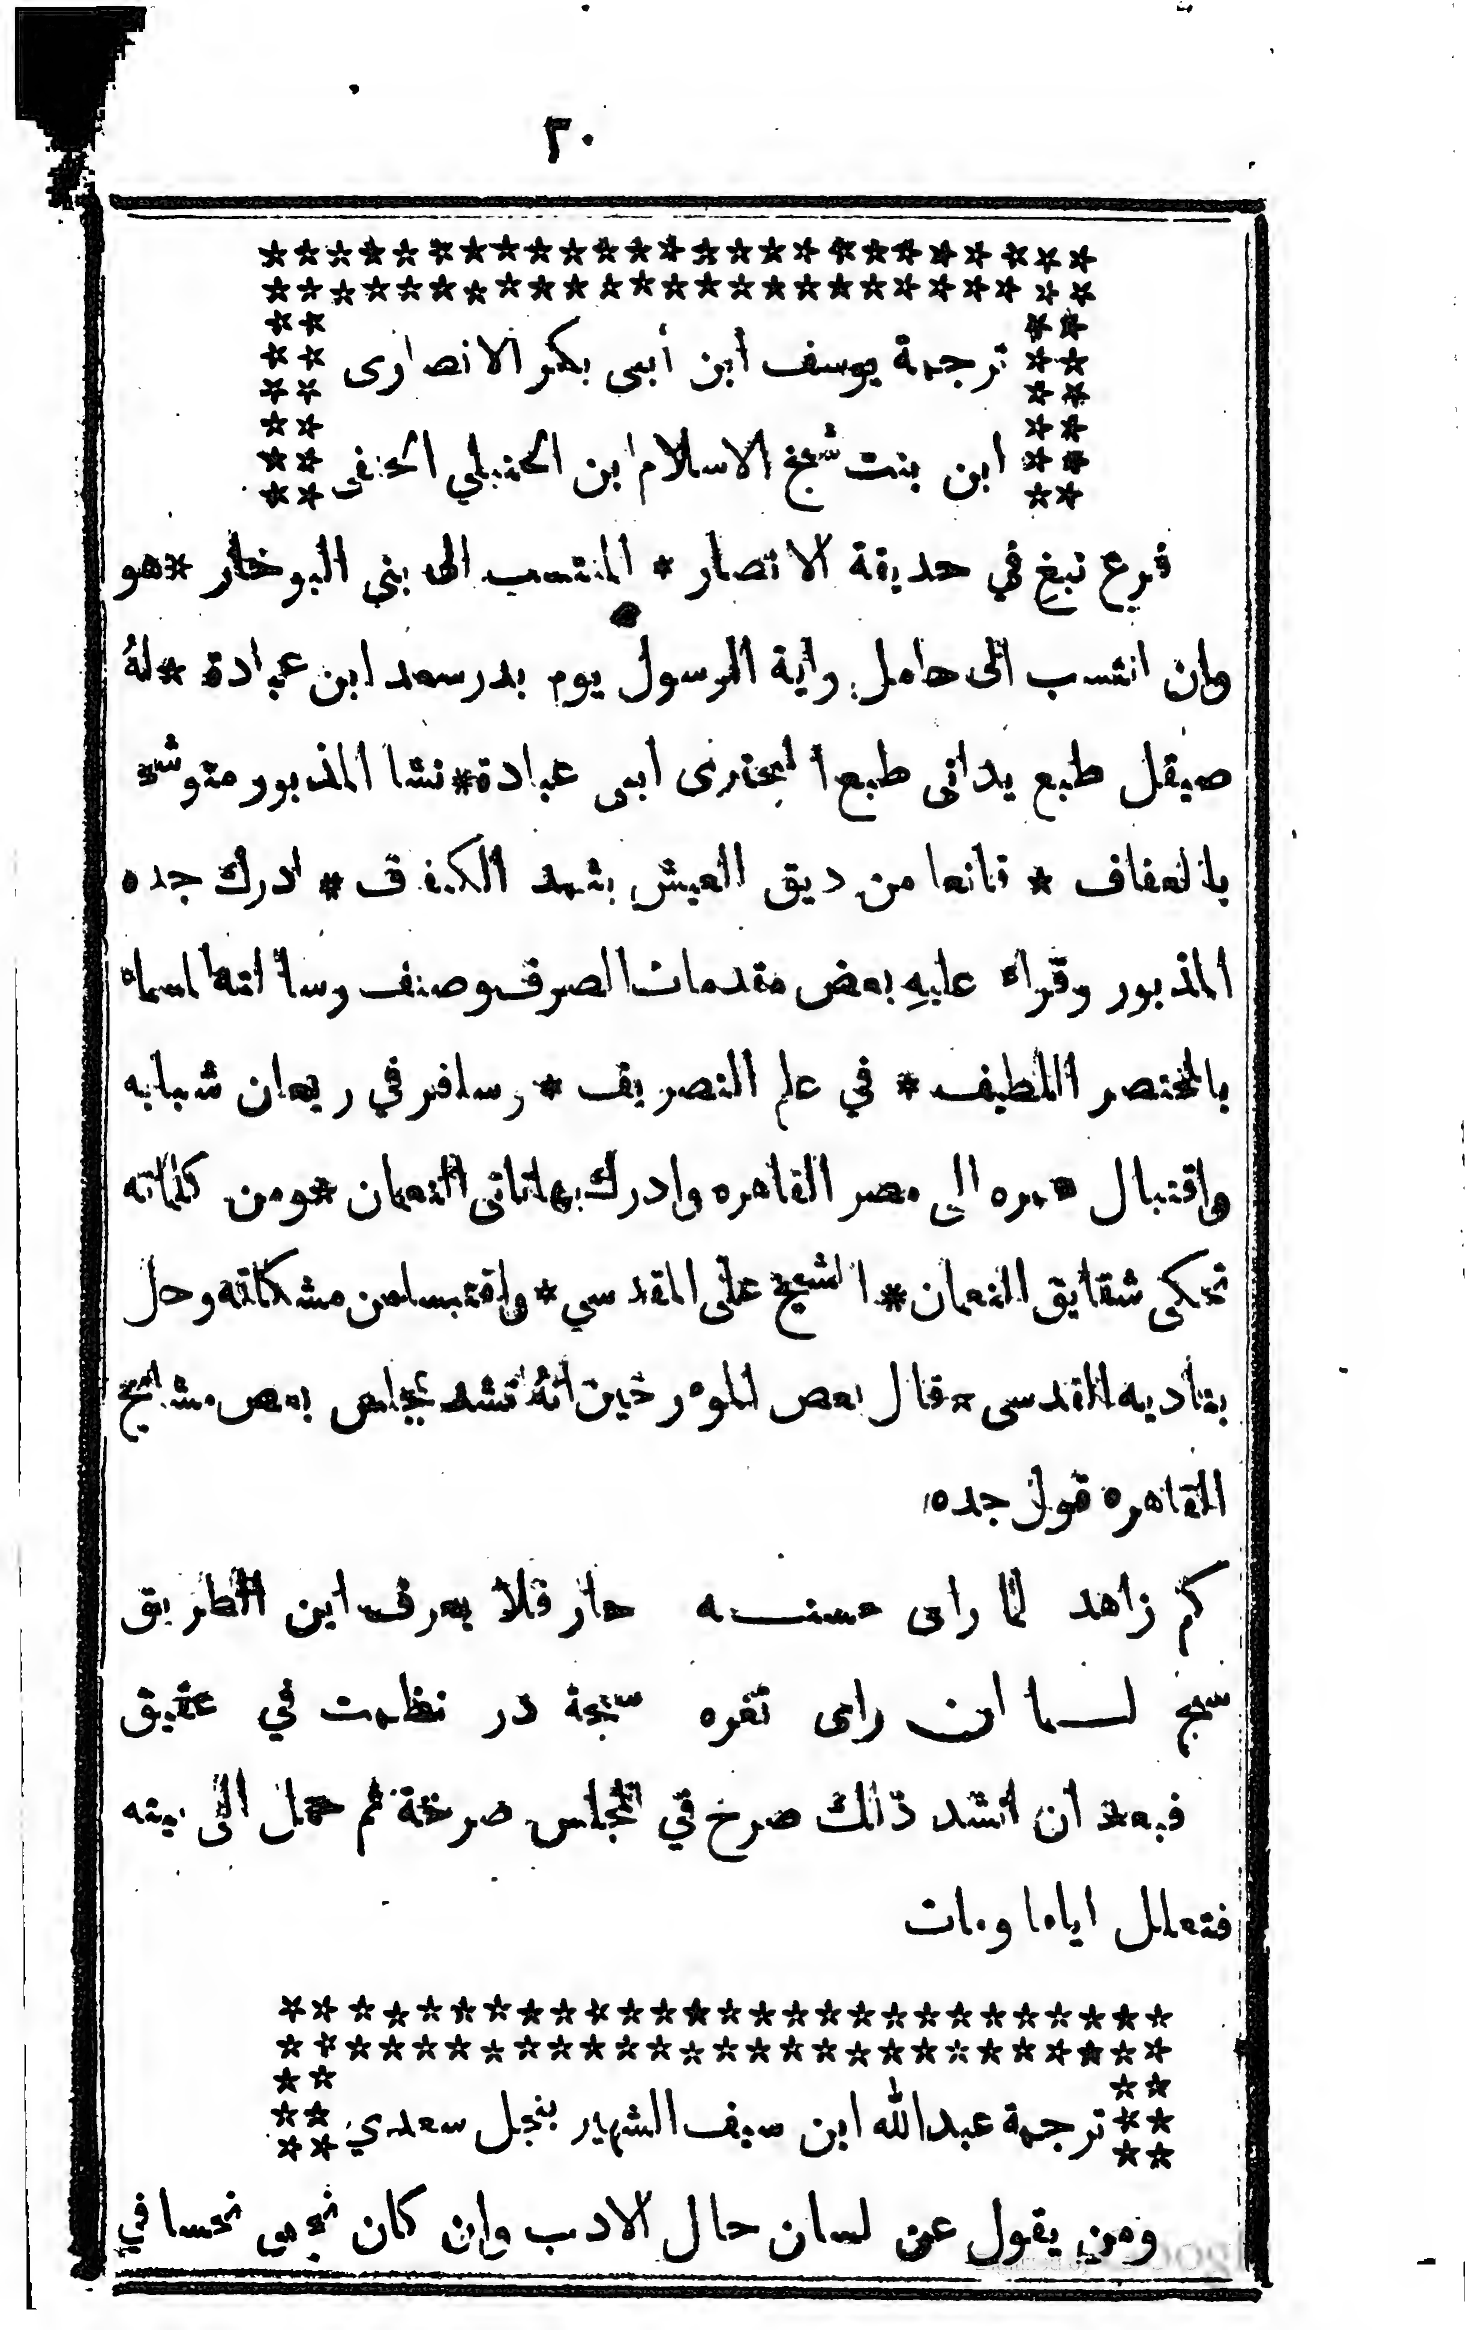 ٣٠
ترجمة يوسف ابن أبي بكر الانصارى
ابن بنت شيخ الاسلام ابن الحنبلي الحنفى
فرع نبغ في حديقة الانصار * المنتسب الى بني * هو
وان انتسب الى حامل راية الرسول يوم بدر سعد ابن عبادة * لهُ
صيقل طبع يدانى طبع البحترى ابى عبادة * نشا المذبور متوشحا
بالعفاف * قانعا من ديق العيش بشهد الكفاف * ادرك جده
المذبور وقراء عليهِ بعض مقدمات الصرف وصنف رسالته اسماه
بالمختصر اللطيف * في علم التصريف * وسافر في ريعان شبابه
واقتبال عمره الى مصر القاهره وادرك بها ثانى النعمان * ومن كلماته
تحكى شقايق النعمان * الشيخ على المقدسي * واقتبس من مشكاته وحل
بناديه القدسى * قال بعض المورخين انهُ انشد بمجلس بعض مشايخ
القاهره قول جده
كم زاهد لما راى حسنه حار فلا يعرف اين الطريق
سبح لما ان راى ثغره سبحة در نظمت في عقيق
فبعد ان انشد ذلك صرخ في المجلس صرخة ثم حمل الى بيته
فتعلل اياما ومات
ترجمة عبدالله ابن سيف الشهير بنجل سعدي
ومن يقول عن لسان حال الادب وان كان نجمى نحسا في